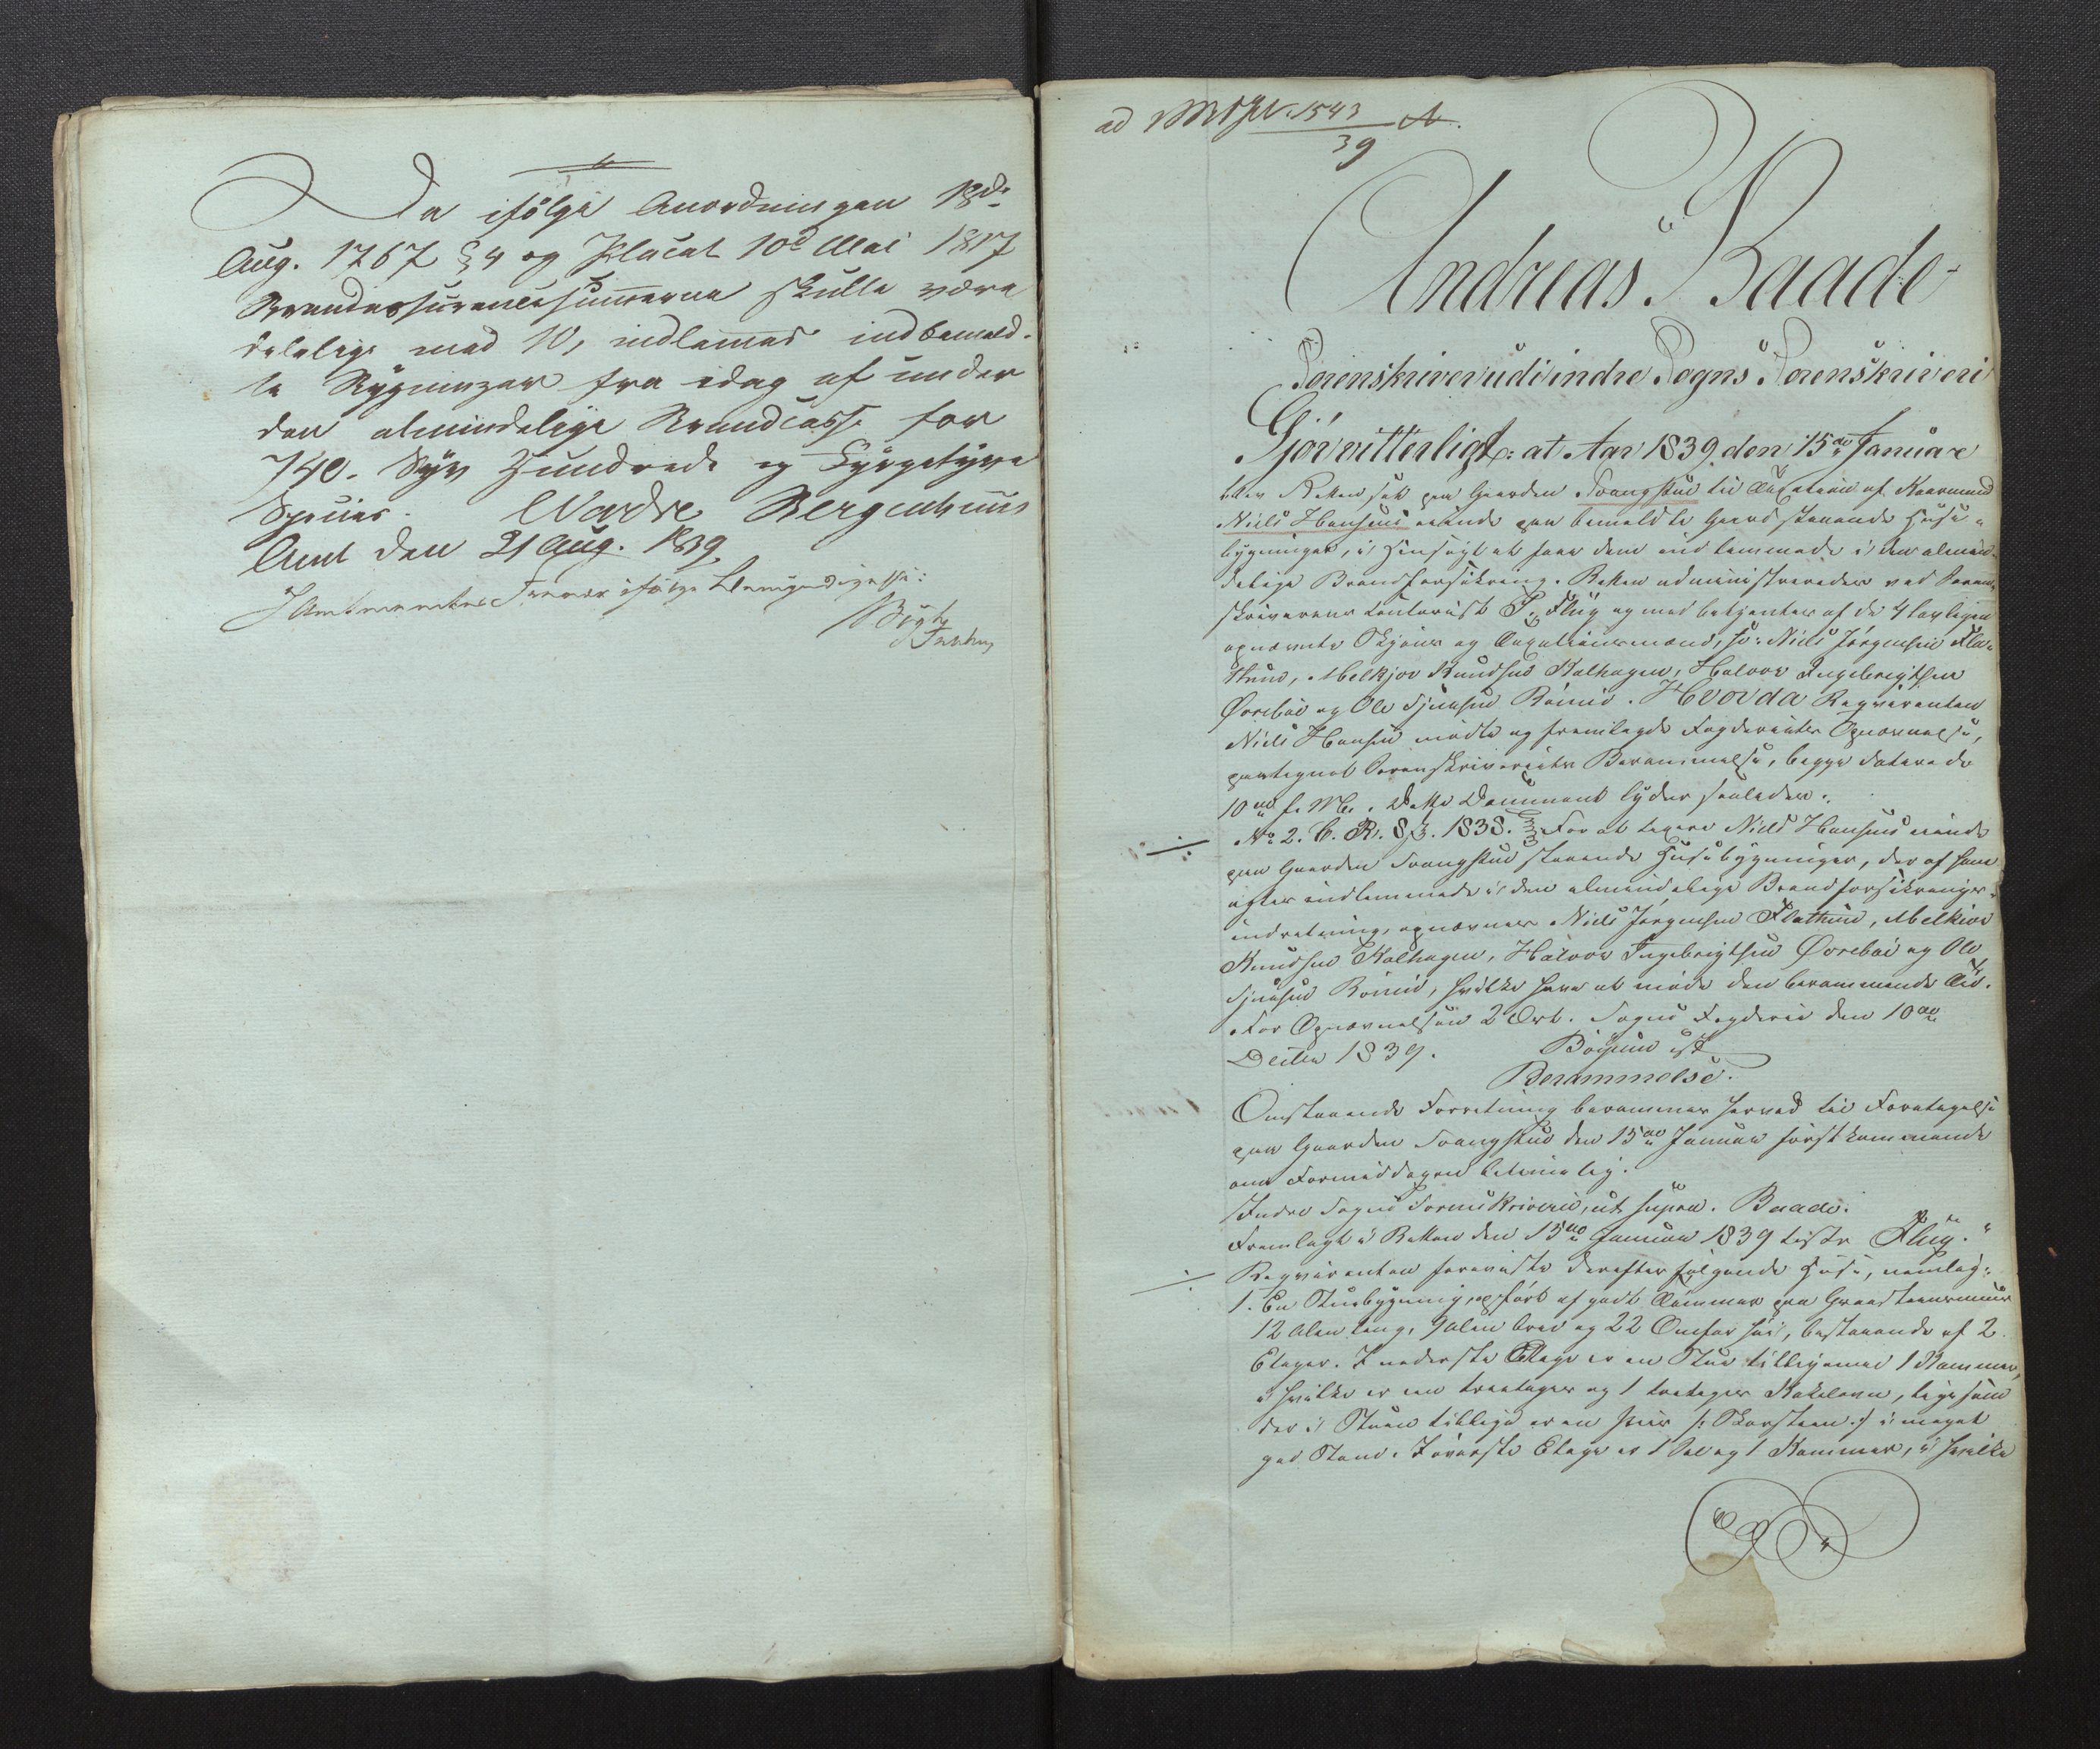 Da ifølge Anordningen 18de
Aug. 1767 § 4 og Placat 10d Mai 1817
Brandassurancesummerne skulle være
delelige med 10, indlemmes indbemeld-
te Bygninger fra idag af under
den almindelige Brandcasse for
740. Syv Hundrede og Fyrgetyve
Species. Nordre Bergenhuus
Amt den 21 Aug. 1839
I Amtmandens Fravær ifølge Bemyndigelse:
ad 1543
39
Andreas Baade
Sorenskriver udi indre Sogns Sorenskriveri
Gjør vitterligt: at Aar 1839 den 15de Januar
blev Retten sat paa Gaarden Svangstue til Taxation af Kaarmand
Niels Hansens eiende paa bemeldte Gaard staaende Huse-
bygninger, i Hensigt at faae dem indlemmede i den almin-
delige Brandforsikring. Retten administreredes ved Soren-
skriverens Contorist P. Flüg og med betjentes af de 4 lovligen
opnævnte Skjøns og Taxationsmænd, so: Niels Jørgensen Fla-
thuus, Melkjor Knudsen Kalhagen, Halvor Ingebrigtsen
Ørrebøe og Ole Sjursen Rømie. Hvorda Reqvirenten
Niels Hansen mødte og fremlagde Fogderiets Opnævnelse,
paategnet Sorenskriveriets Berammelse, begge daterede
10de f. M. Dette Document lyder saaledes:
No 2. C. R. 8 ß. 1838. For at taxere Niels Hansens eiende
paa Gaarden Svangstue staaende Husebygninger, der af ham
agtes indlemmede i den almindelige Brandforsikrings-
indretning, opnævnes Niels Jørgensen Flathuus, Melkior
Knudsen Kalhagen, Halvor Ingebrigtsen Ørrebøe og Ole
Sjursen Rømie, hvilke have at møde den berammende Tid.
For Opnævnelsen 2 Ort. Sogns Fogderie den 10de
Decbr 1839.
Berammelse.
Omstaaende Forretning berammes herved til Foretagelse
paa Gaarden Svangstue den 15de Januar førstkommende
om Formiddagen betimelig.
Indre Sogns Sorenskriverie, ut supra. Baade.
Fremlagt i Retten den 15de Januar 1839 tester Flüg."
Reqvirenten foreviste derefter følgende Huse, nemlig:
1. En Stuebygning, opført af godt Tømmer paa Graasteensmuur
12 Alen lang, 9 Alen bred og 22 Omfar høi, bestaaende af 2
Etager. I nederste Etage er en Stue tilligemed 1 Kammer,
i hvilke er en treetages og 1 toetages Kakelovn, ligesom
der i Stuen tillige er en Piis /: Skorsteen :/ i meget
god Stand. I øverste Etage er 1 Sal og 1 Kammer, i hvilke